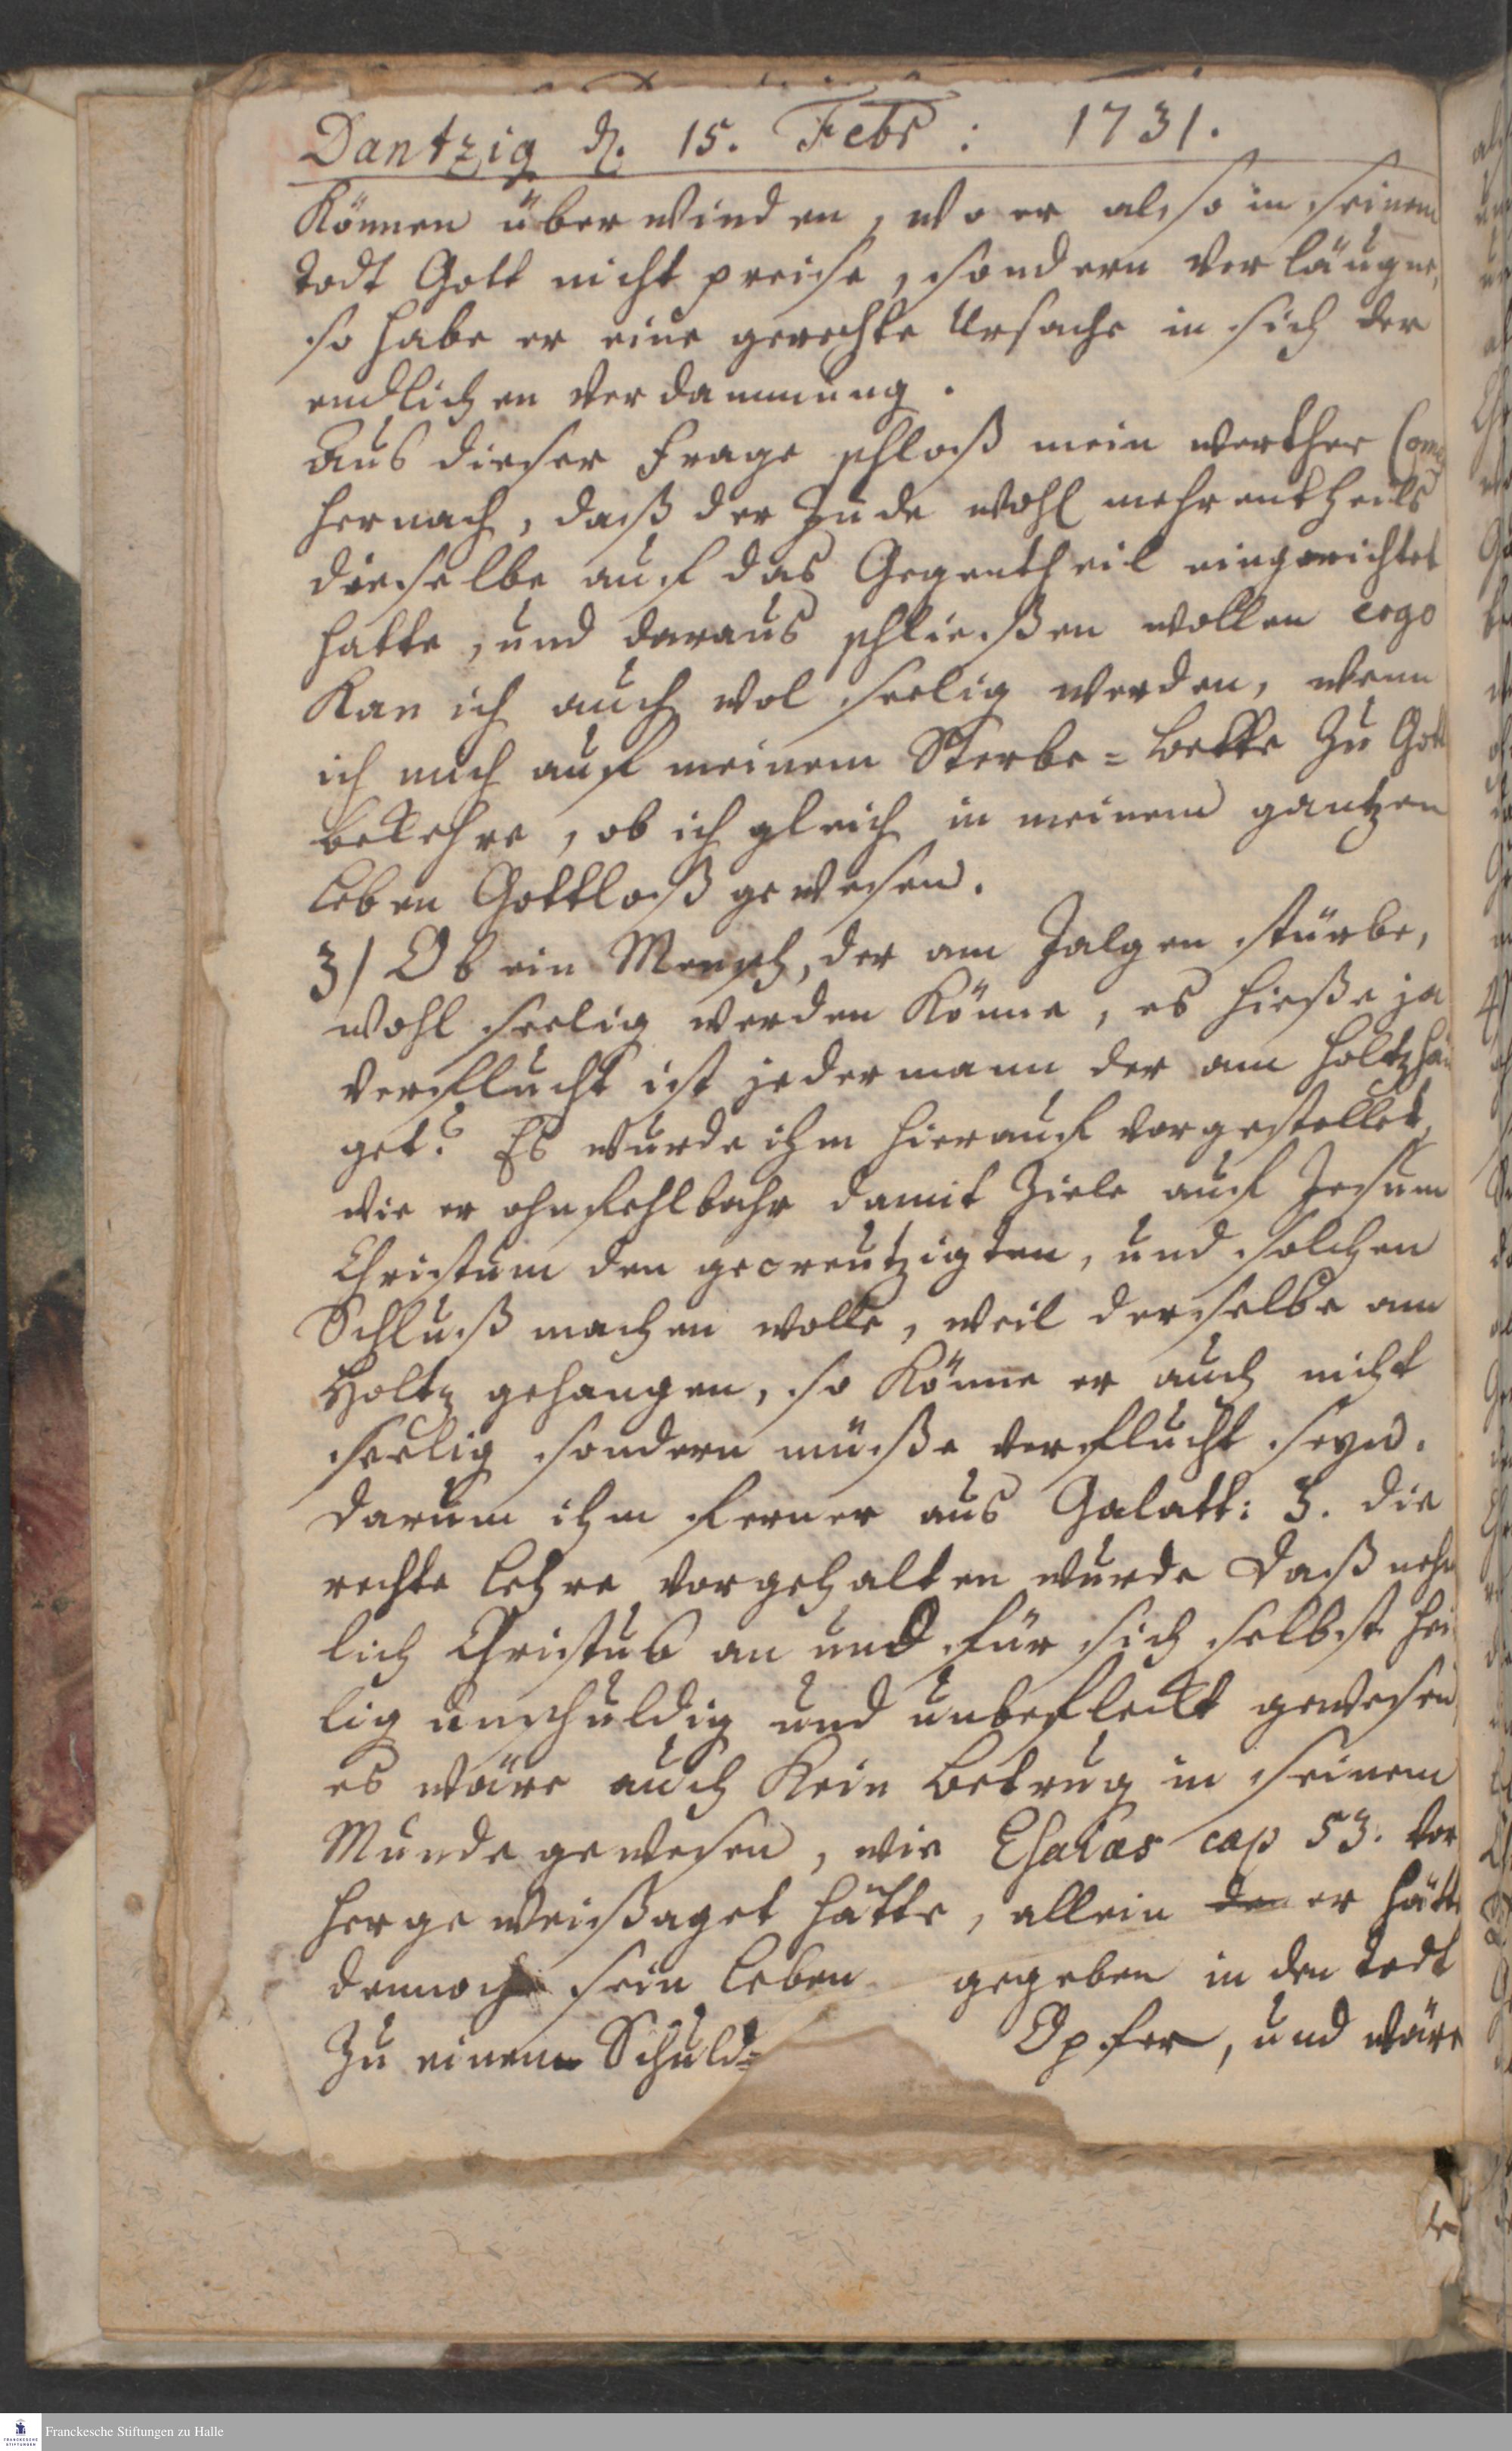 Dantzig d. 15. Febr: 1731.
Können überwinden, wo er also in seinem
todt Gott nicht preise, sondern verläugne,
so habe er eine gerechte Ursache in sich der
endlichen Verdammung.
Aus dieser Frage schloß mein werther Com
hernach, daß der Jude wohl mehrentheils
dieselbe auf das Gegentheil eingerichtet
hatte, und daraus schließen wollen ergo
Kan ich auch wol seelig werden, wenn
ich mich auf meinem Sterbe=bette zu Gott
bekehre, ob ich gleich in meinem gantzen
Leben Gottloß gewesen.
3) Ob ein Mensch, der am Galgen stürbe,
wohl seelig werden Könne, es hieße ja
verflucht ist jedermann der am holtz hän
get? Es wurde ihm hierauf vorgestellet,
wie er ohnfehlbahr damit ziele auf Jesum
Christum den gecreutzigten, und solchen
Schluß machen wolle, weil derselbe am
Holtz gehangen, so Könne er auch nicht
seelig sondern müße verflucht seyn.
Darum ihm ferner aus Galatt: 3. die
rechte Lehre vorgehalten wurde Daß nehm
lich Christus an und für sich selbst hei
lig unschuldig und unbefleckt gewesen,
es wäre auch Kein Betrug in seinem
Munde gewesen, wie Esaias cap 53. vor
her geweißaget hätte, allein de er hätte
dennoch sein Leben gegeben in den todt
Zu einem Schuld= Opfer, und wäre
Franckesche Stiftungen zu Halle